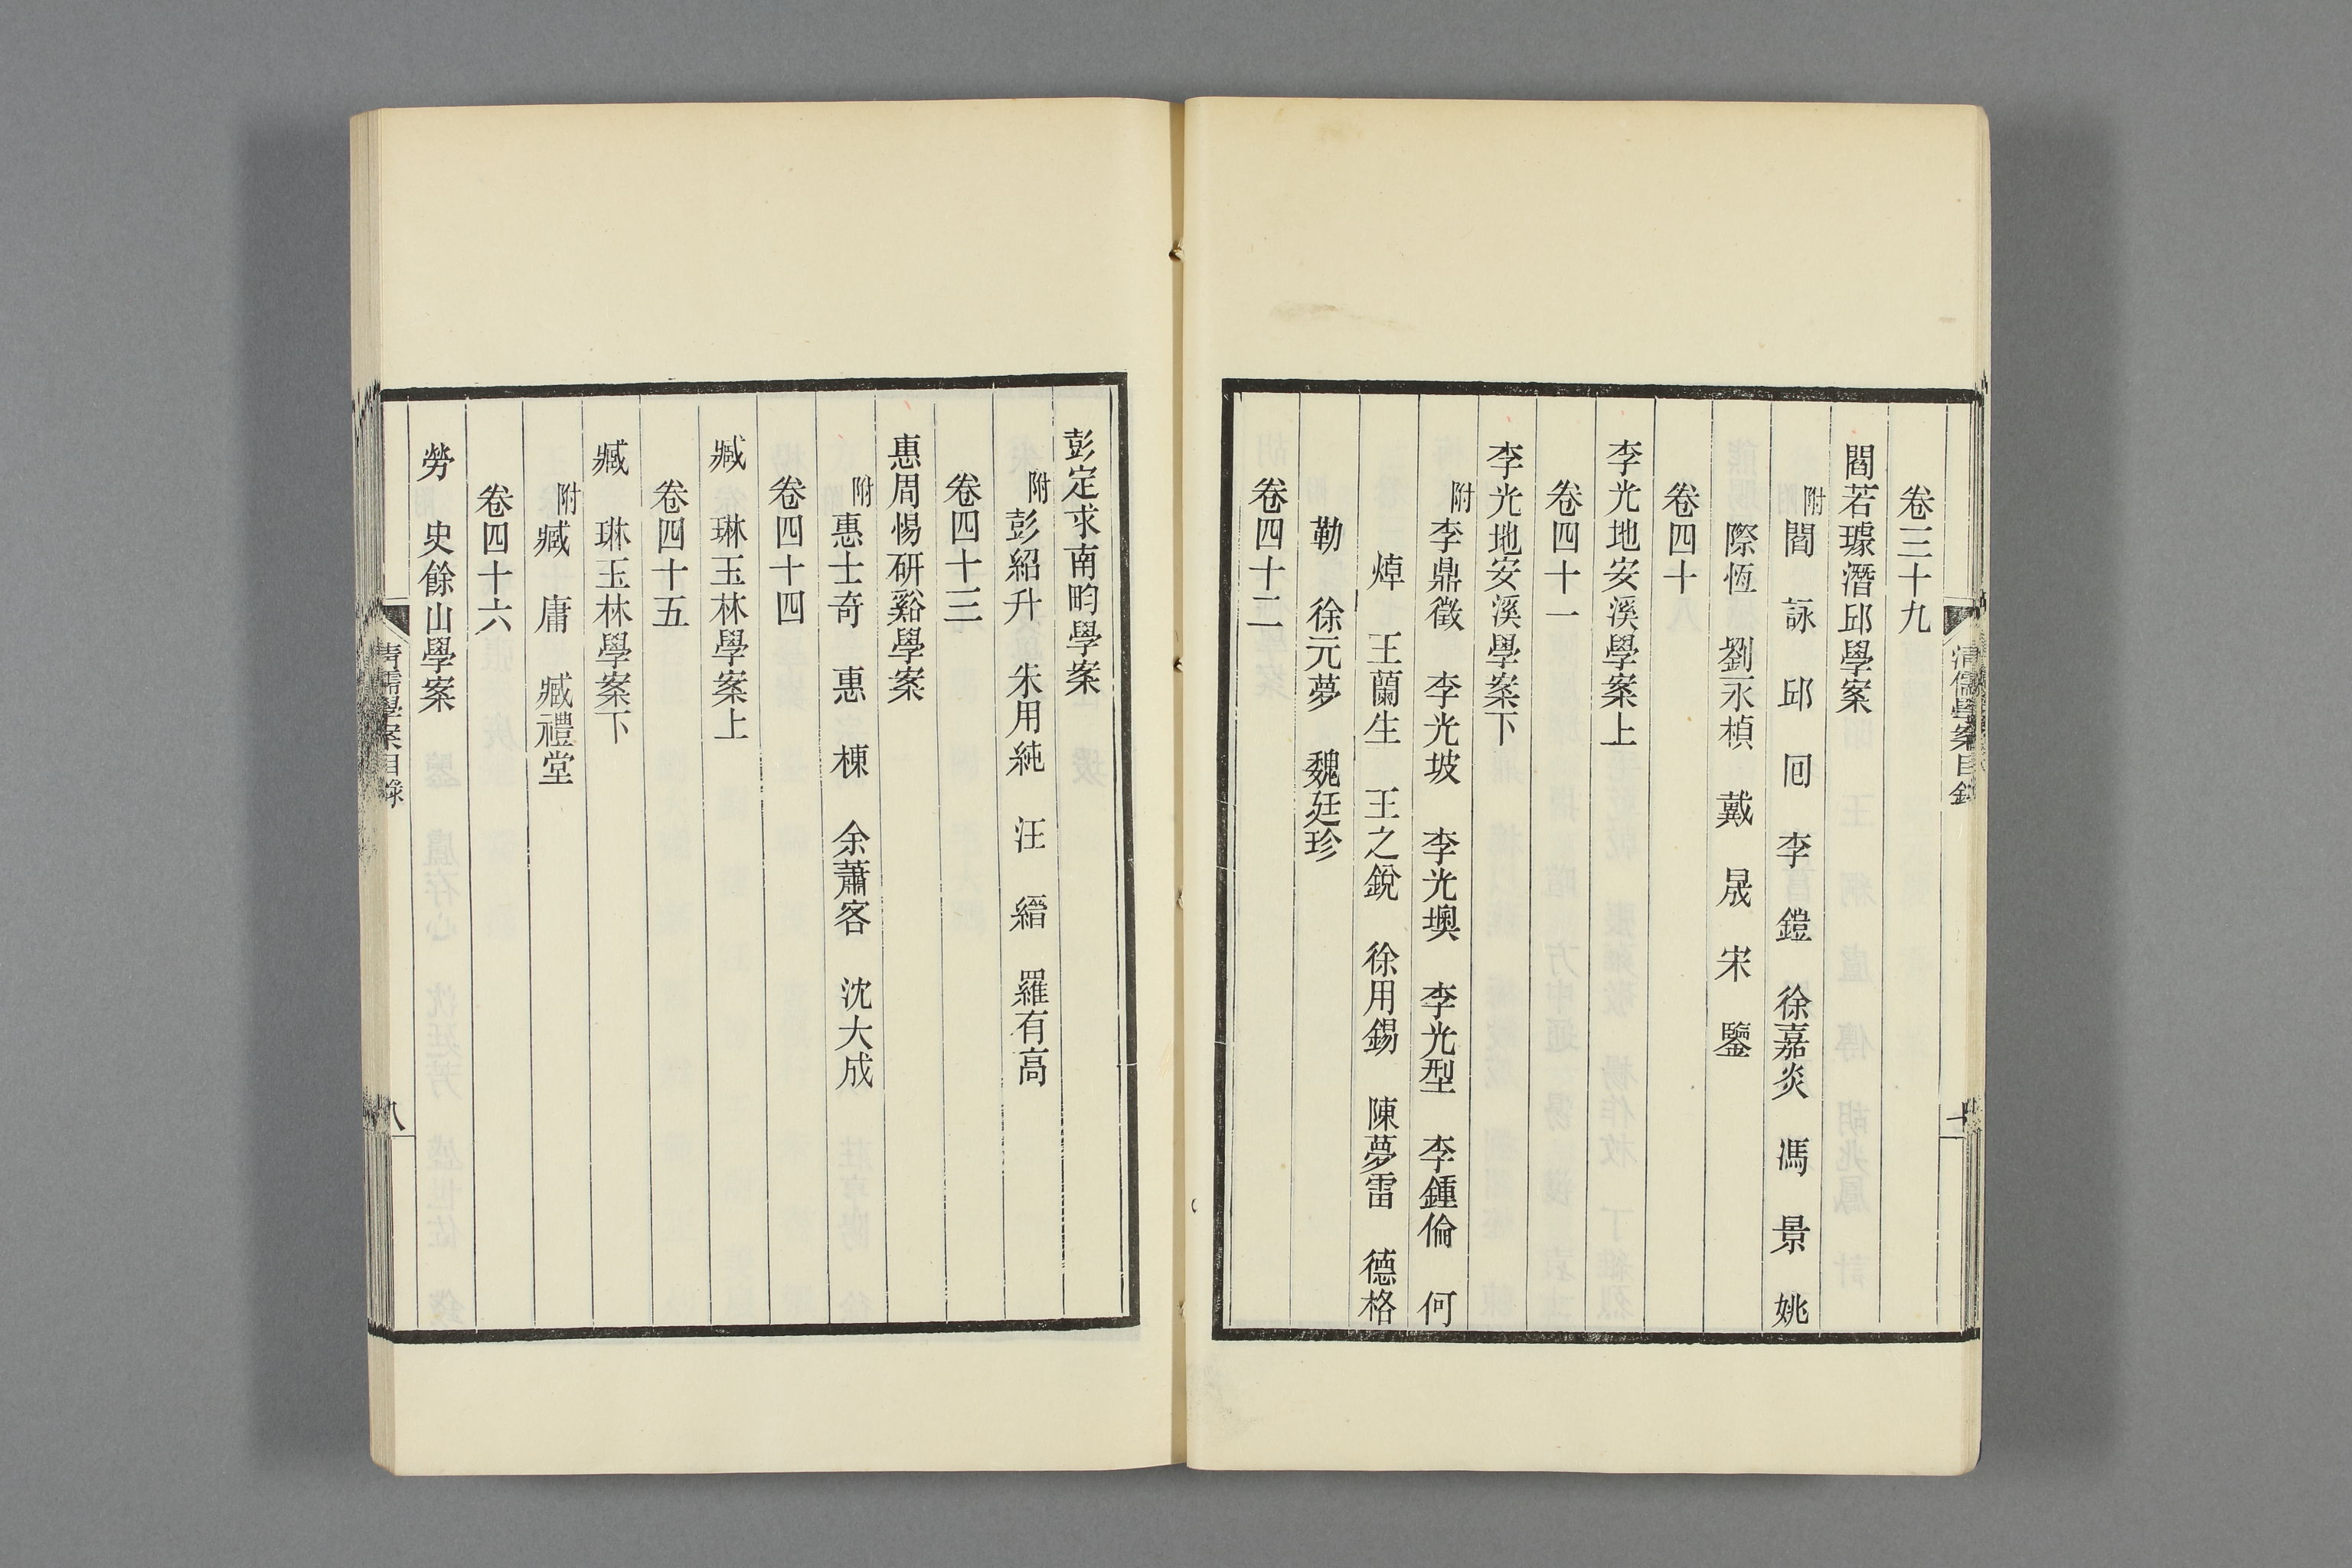 清儒學案目錄
七
卷三十九
閻若璩潛邱學案
附閻 詠 邱 回 李 鎧 徐嘉炎 馮 景 姚
際恆 劉永楨 戴 晟 宋 鑒
卷四十
李光地安溪學案上
卷四十一
李光地安溪學案下
附李鼎徵 李光坡 李光墺 李光型 李鍾倫 何
焯 王蘭生 王之銳 徐用錫 陳夢雷 德格
勒 徐元夢 魏廷珍
卷四十二
彭定求南畇學案
附彭紹升 朱用純 汪 縉 羅有高
卷四十三
惠周惕研谿學案
附惠士奇 惠 棟 余蕭客 沈大成
卷四十四
臧 琳玉林學案上
卷四十五
臧 琳玉林學案下
附臧 庸 臧禮堂
卷四十六
勞 史餘山學案
清儒學案目錄
八